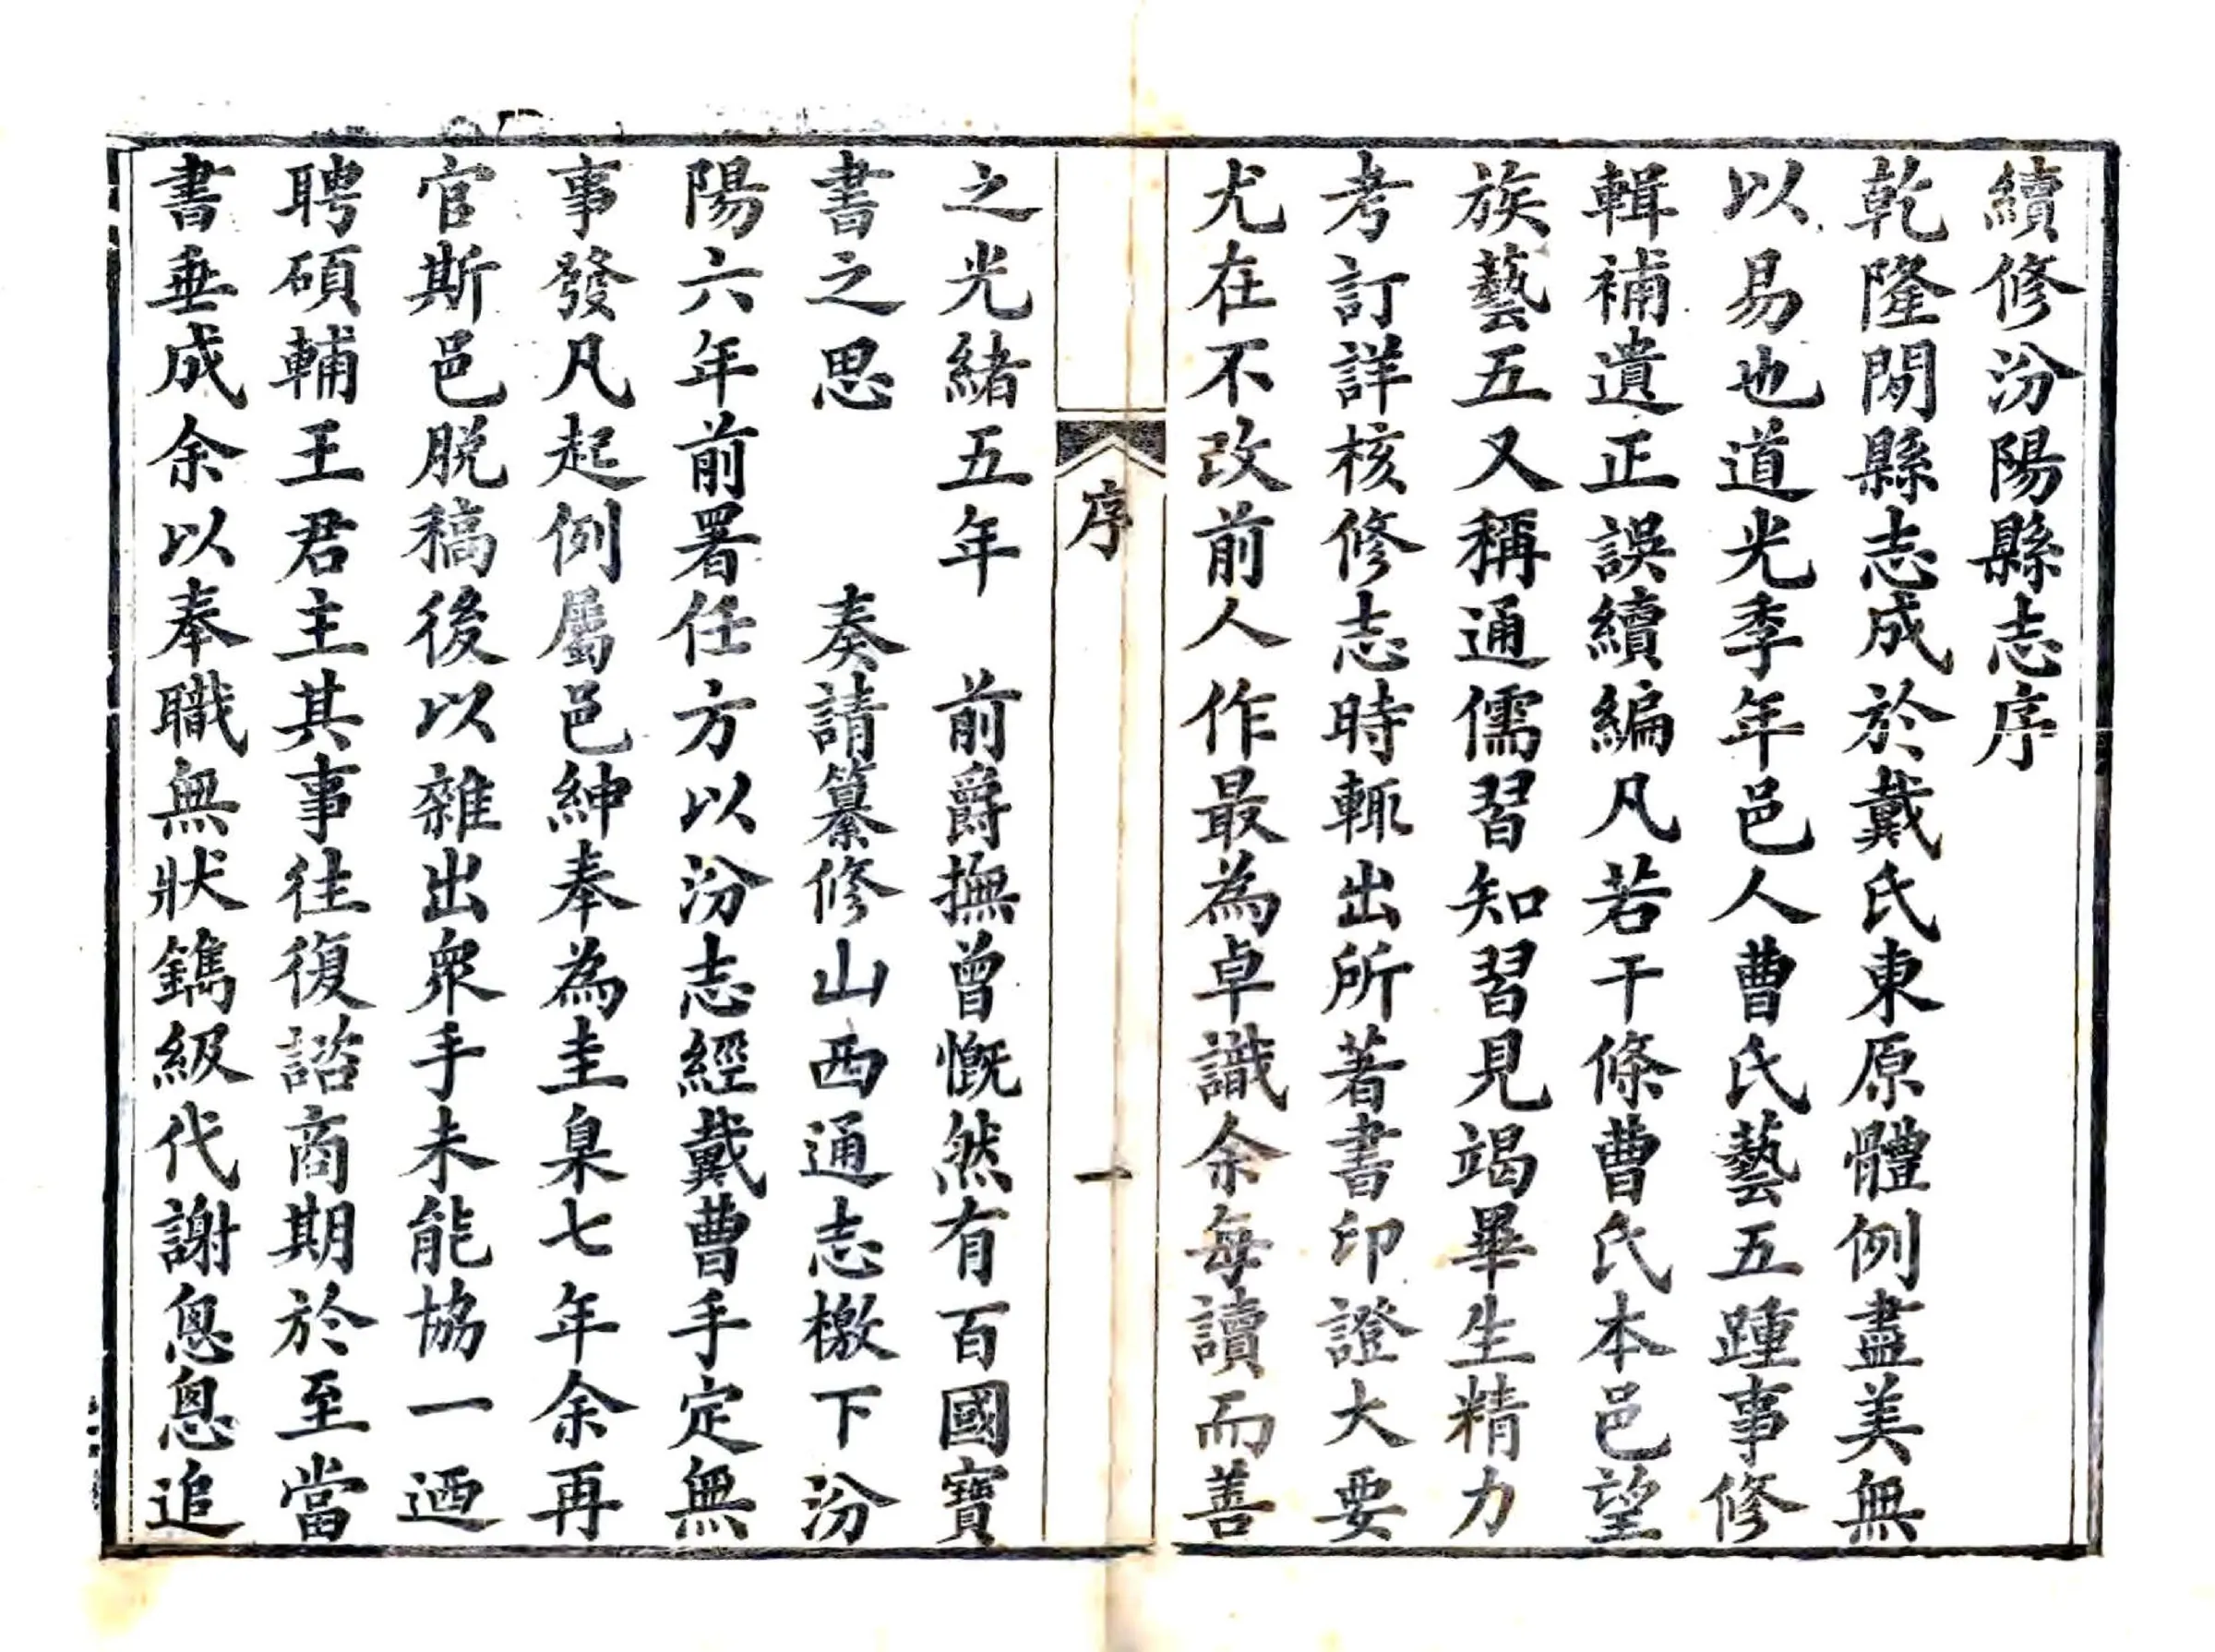 續修汾陽縣志序
乾隆閒縣志成於戴氏東原體例盡美無
以易也道光季年邑人曹氏藝五踵事修
輯補遺正誤續編凡若干條曹氏本邑望
族藝五又稱通儒習知習見竭畢生精力
考訂詳核修志時輒出所著書印證大要
尤在不改前人作最為卓識余每讀而善
序
一
之光緒五年　前爵撫曾慨然有百國寶
書之思　　奏請纂修山西通志檄下汾
陽六年前署任方以汾志經戴曹手定無
事發凡起例屬邑紳奉為圭臬七年余再
官斯邑脱稿後以雜出衆手未能協一迺
聘碩輔王君主其事往復諮商期於至當
書垂成余以奉職無狀鐫級代謝悤悤追